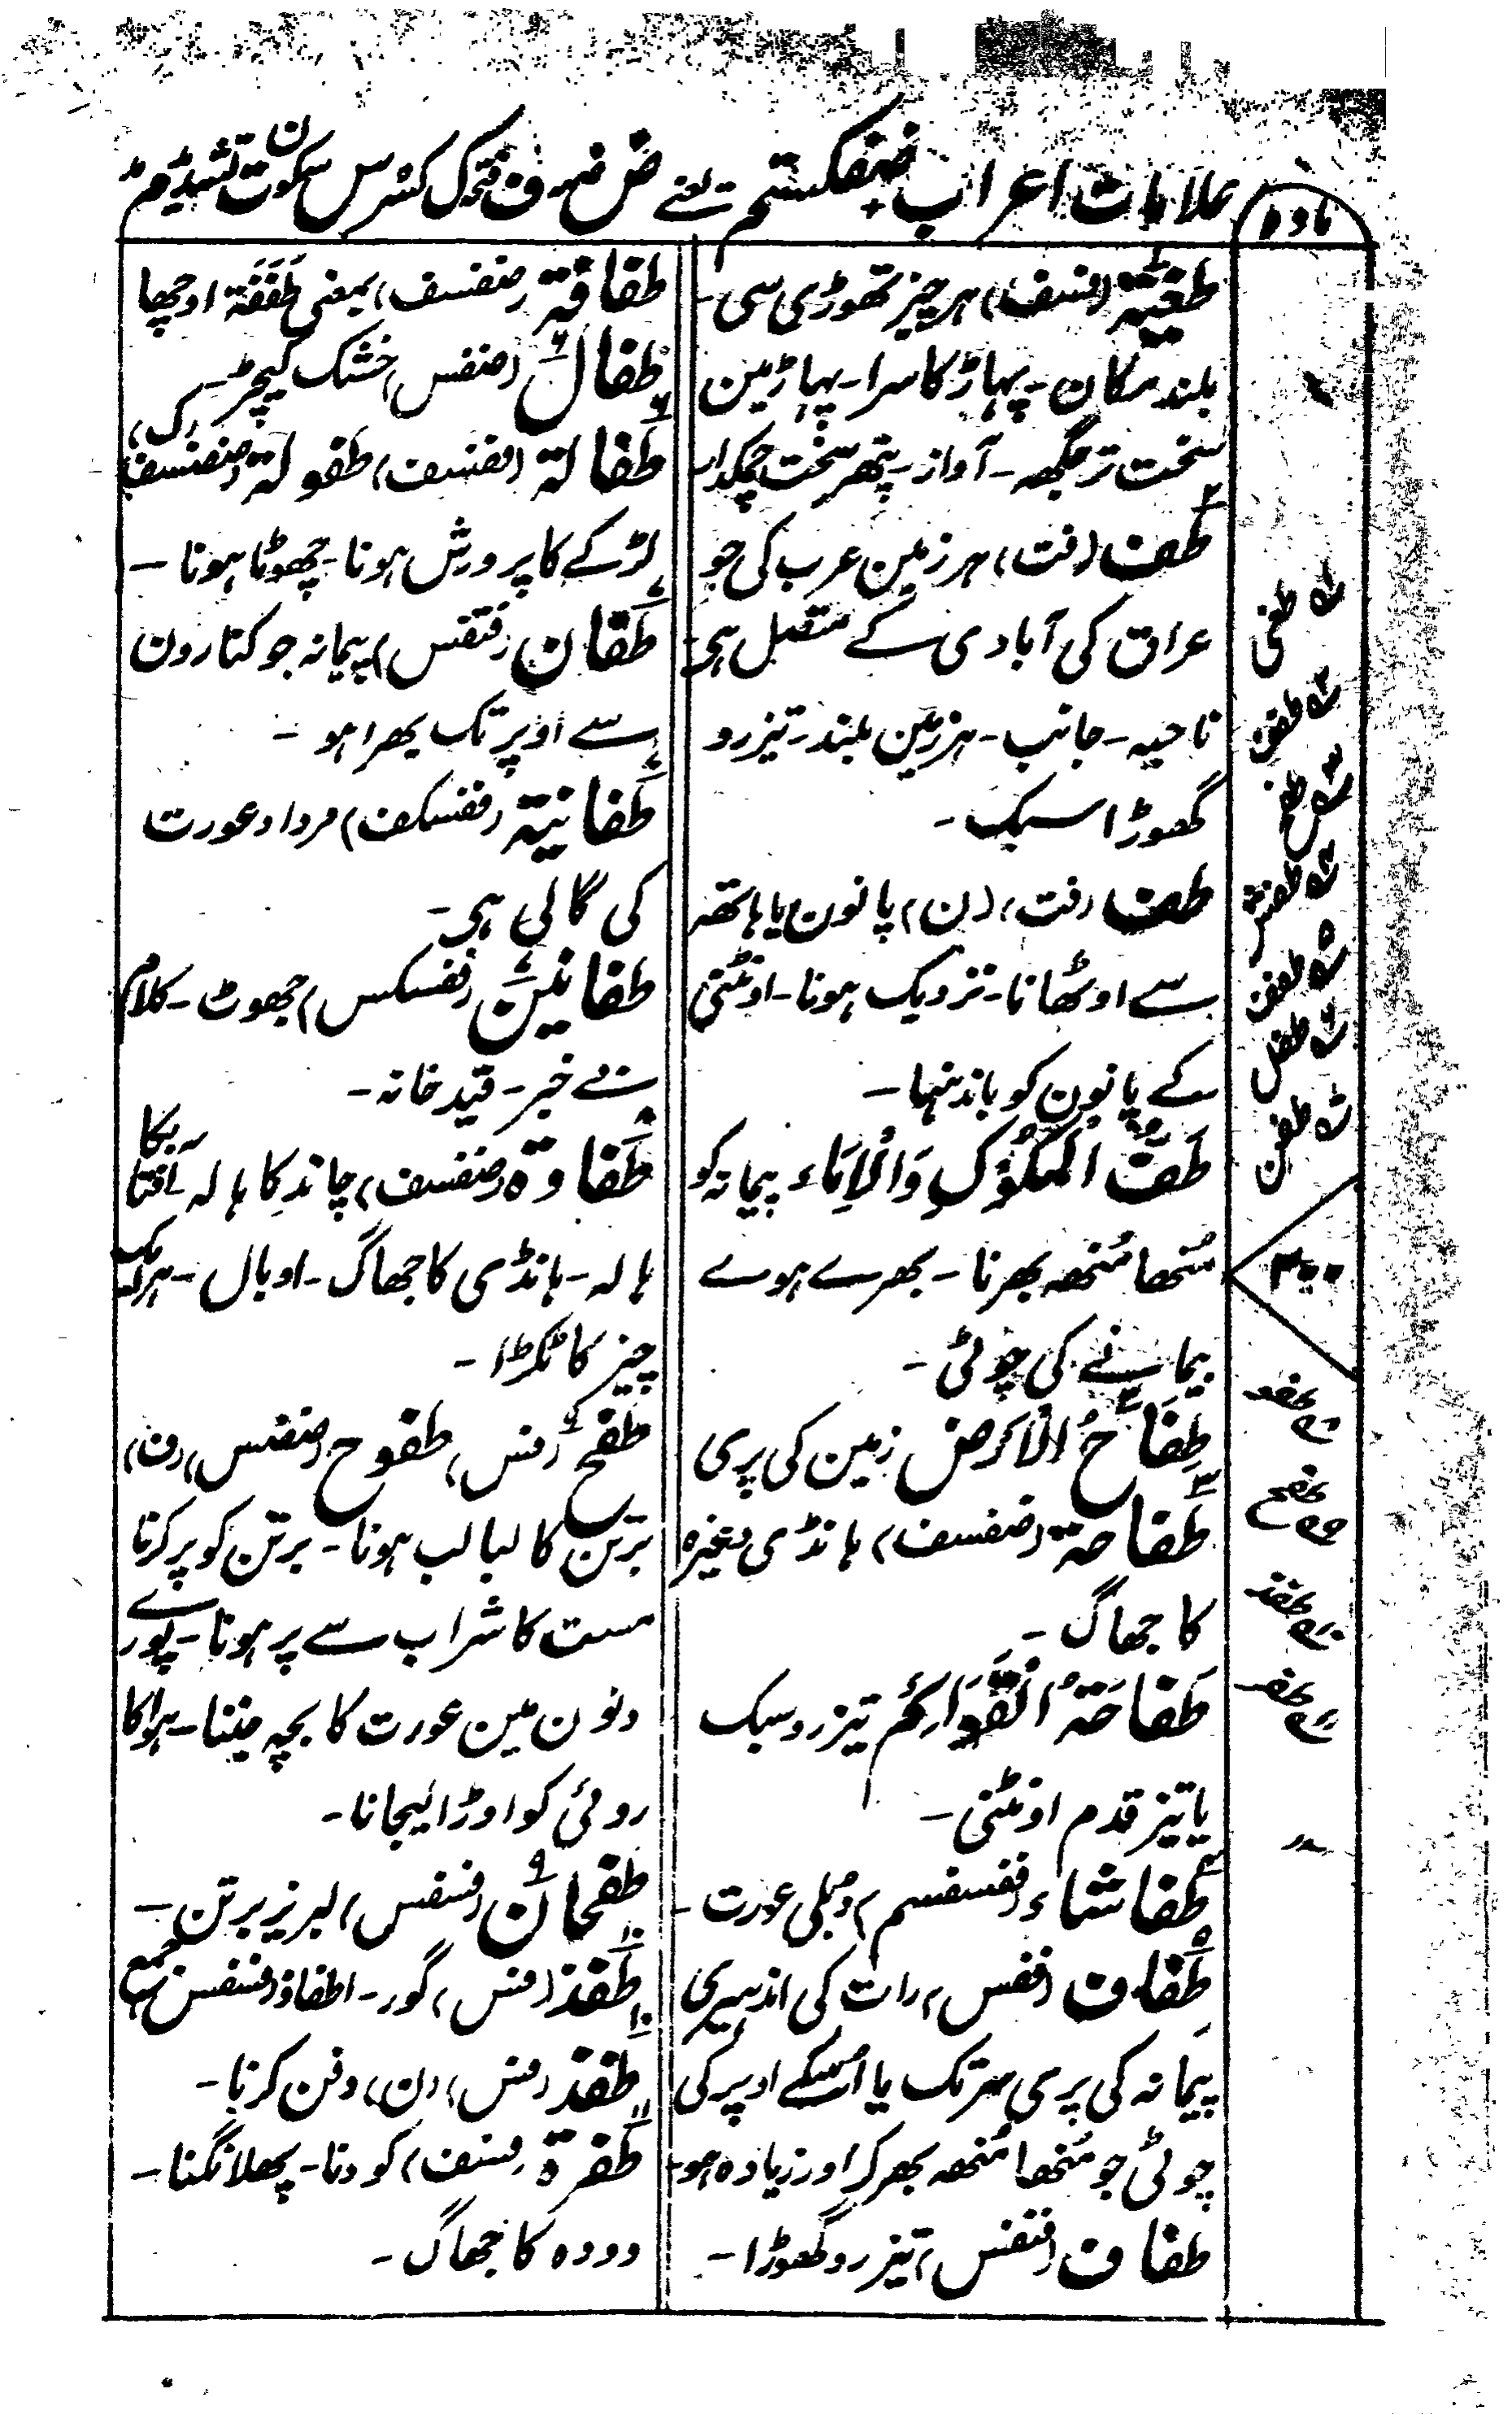 علامات اعراب ضفکستم یعنے ض ضمہ ف فتحہ ک کسرہ س سکون ت تشدید م مد
مادہ
طغیة (فسف) ہر چیز تھوڑی سی۔
بلند مکان۔ پہاڑ کا سرا۔ پہاڑ مین
سخت تر جگھہ۔ آواز۔ پتھر سخت چمکدار
طف (فت) سرزمین عرب کی جو
عراق کی آبادی کے متصل ہی۔
ناحیہ۔ جانب۔ سرزمین بلند۔ تیزرو
گھوڑا سبک۔
طف (فت) (ن) پانون یا ہاتھہ
سے اوٹھانا۔ نزدیک ہونا۔ اونٹنی
کے پانون کو باندہنا۔
طَفُّ الْمَکُوْکِ وَالْاِنَاء پیمانہ کو
مُنھا مُنھہ بھرنا۔ بھرے ہوے
پیمانے کی چوٹی۔
طِفَاحُ الْاَرض زمین کی پری
طفاحة (ضفسف) ہانڈی وغیرہ
کا جھاگ۔
طَفاحَةُ الْقَوَائِم تیزرو سبک
یا تیز قدم اونٹنی۔
طفاشاء (ففسفسم) دبلی عورت۔
طفاف (ففس) رات کی اندہیری
پیمانہ کی پری سرتک یا اُسکے اوپر کی
چوٹی جو مُنھا مُنھہ بھر کر اور زیادہ ہو۔
طفاف (فتفس) تیزرو گھوڑا۔
طفافة (ضفسف) بمعنی طَفَفَة اوچھا
طفال (ضفس) خشک کیچڑ۔
طفالة (ففسف) طفولة (ضضسف) (ک)
لڑکے کا پرورش ہونا۔ چھوٹا ہونا۔
طفّان (فتفس) پیمانہ جو کنارون
سے اوپر تک بھرا ہو۔
طفانیة (ففسکف) مرد اور عورت
کی گالی ہی۔
طفانین (ففسکس) جھوٹ۔ کلام
بے خبر۔ قید خانہ۔
طفاوة (ضفسف) چاند کا ہالہ۔ آفتاب کا
ہالہ۔ ہانڈی کا جھاگ۔ اوبال۔ ہر ایک
چیز کا ٹکڑا۔
طفح (فس) طفوح (ضضس) (ف)
برتن کا لبالب ہونا۔ برتن کو پر کرنا
مست کا شراب سے پر ہونا۔ پورے
دنون مین عورت کا بچہ جننا۔ ہوا کا
روئی کو اوڑا لیجانا۔
طفحان (فسفس) لبریز برتن۔
طفذ (فس) گور۔ اطفاذ (فسفس) جمع
طفذ (فس) (ن) دفن کرنا۔
طفرة (فسف) کودنا۔ پھلانگنا۔
دودہ کا جھاگ۔
طغی
طفل
طفن
۳۰۰